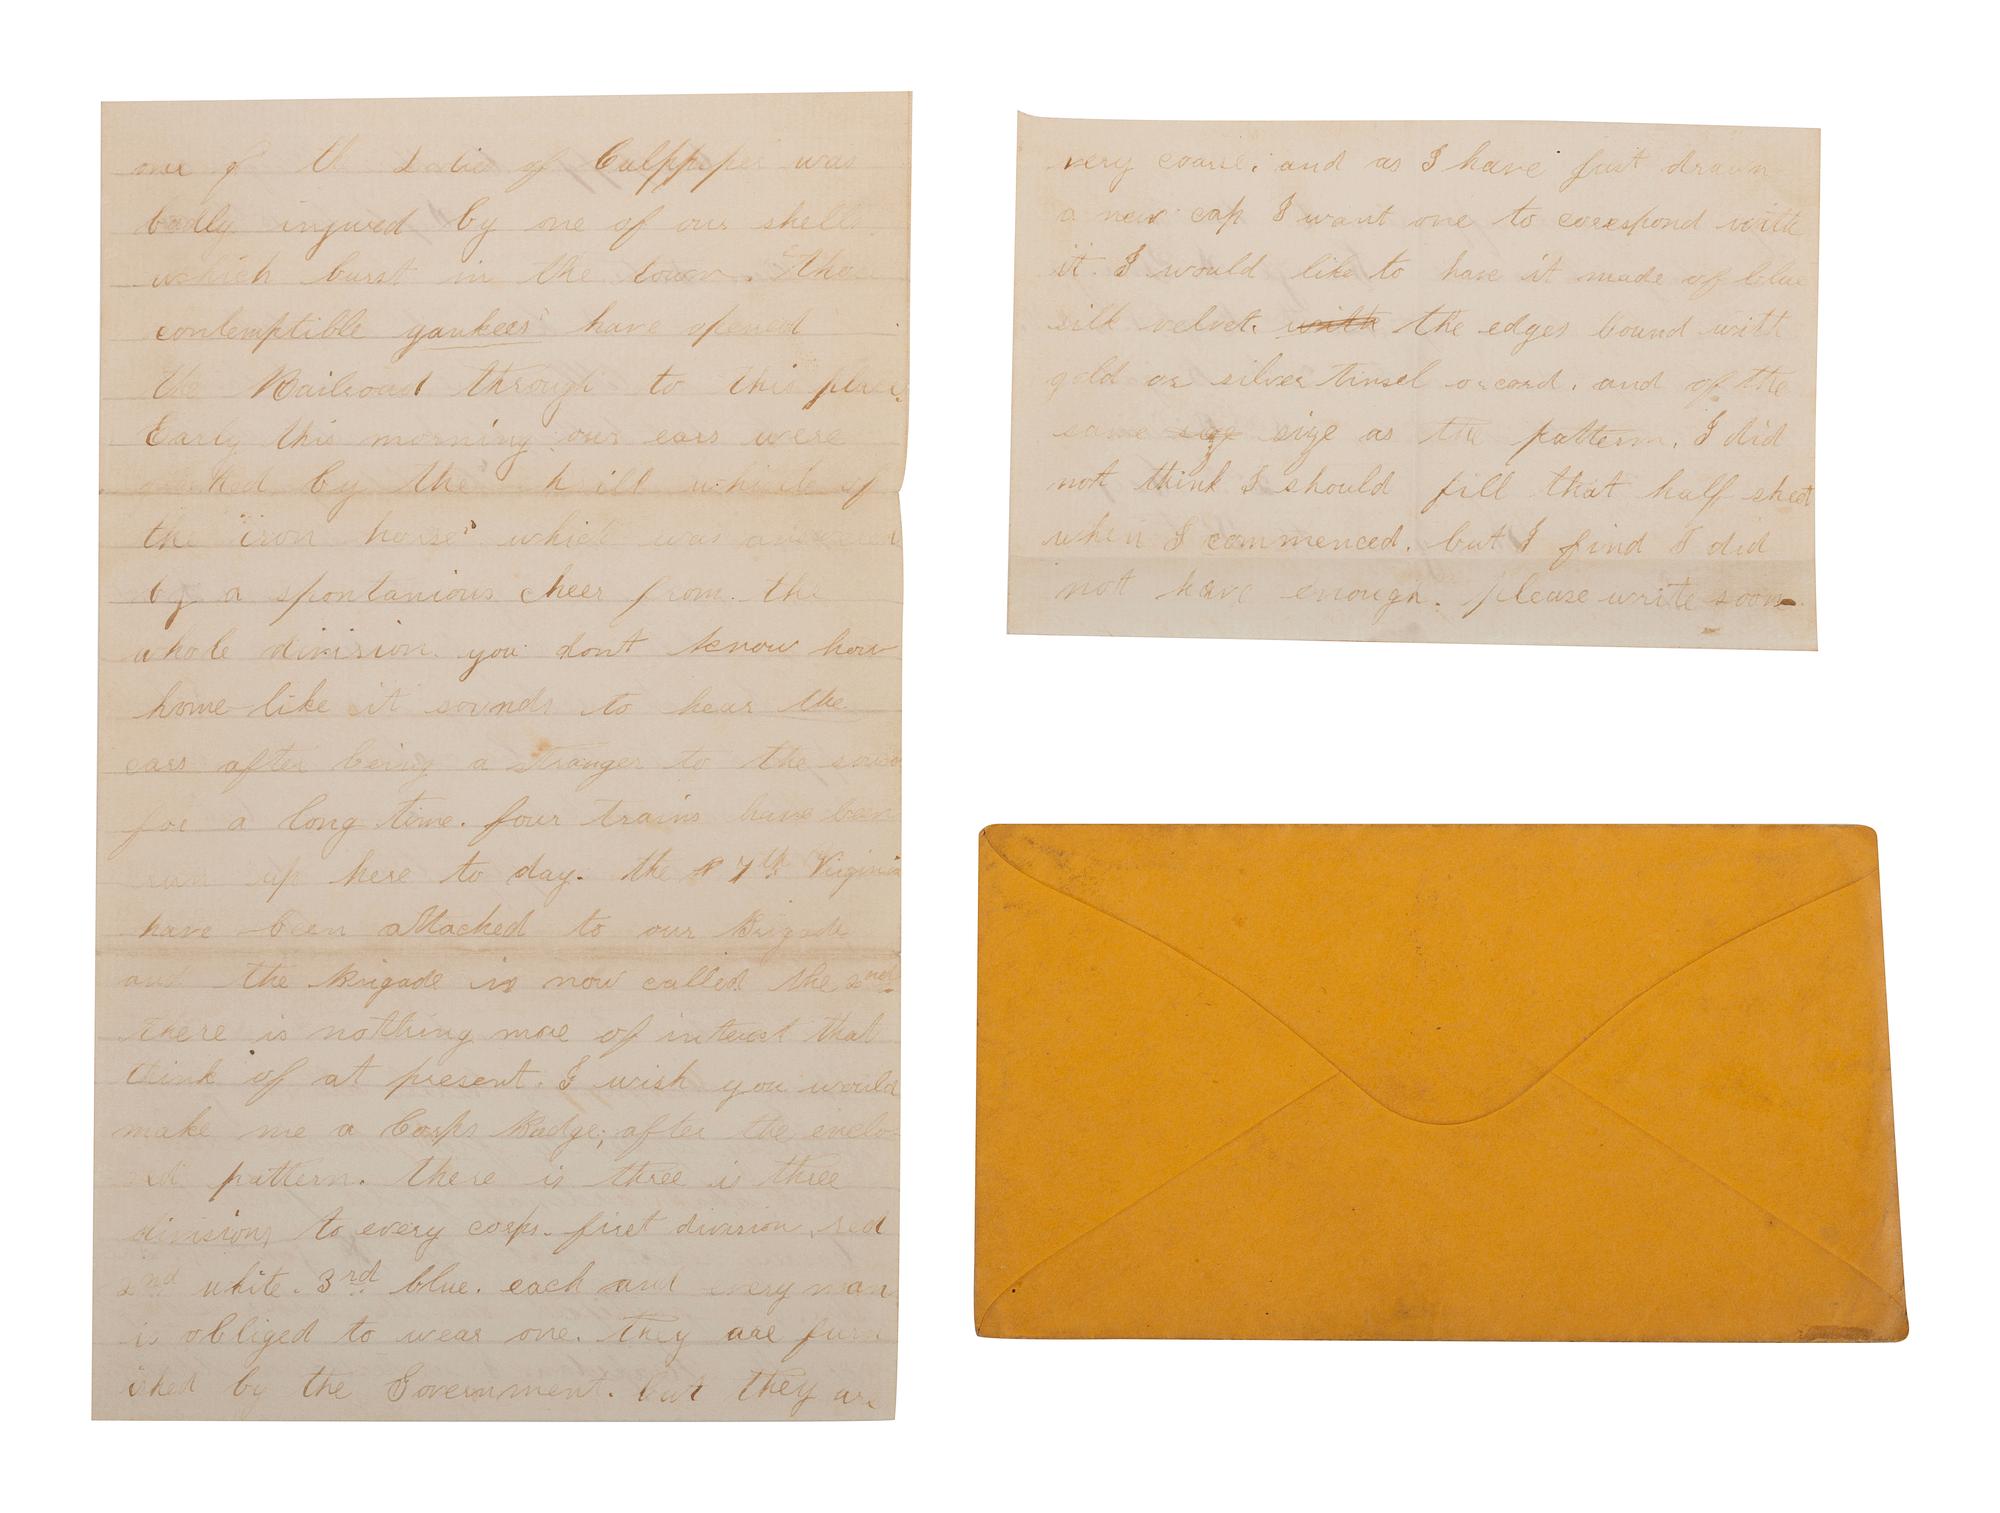 one of the Ladies of Culppeper was
badly injured by one of our shells.
which burst in the town. "Thou
contemptible yankees" have opened
the Railroad through to this place.
Early this morning our ears were
by the shrill whistle of
the "iron horse" which was answered
by a spontanious cheer from. the
whole division. you dont know how
home like it sounds to hear the
cars after being a stranger to the sound
for a long time. four trains have been
up here to day. the 7th Virginia
have been attached to our Brigade
and the Brigade is now called the 2nd.
there is nothing more of interest that
think of at present. I wish you would
make me a Corps Badge; after the enclo-
sed pattern. there is three is three
divisions to every corps. first division, red
2nd white. 3rd blue. each and every man
is obliged to wear one. they are furn
ished by the Government. but they are
very coarse. and as I have just drawn
a new cap I want one to correspond with
it. I would like to have it made of blue
silk velvet. with the edges bound with
gold or silver tinsel or cord. and of the
same size size as the pattern. I did
not think I should fill that half sheet
when I commenced. but I find I did
not have enough. please write soon.